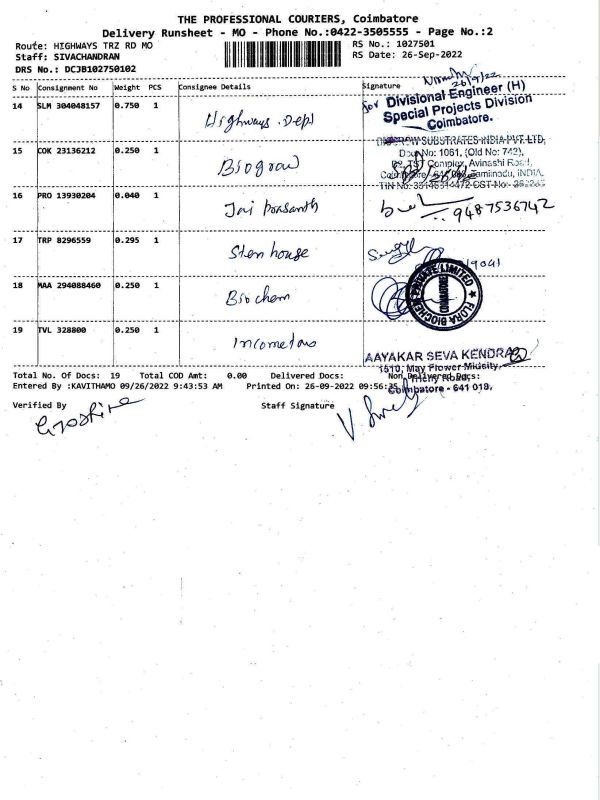 THE PROFESSIONAL COURIERS, Coimbatore
Delivery Runsheet - MO - Phone No.:0422-3505555 - Page No.:2
Route: HIGHWAYS TRZ RD MO
RS No.: 1027501
Staff: SIVACHANDRAN
RS Date: 26-Sep-2022
DRS No.: DCJB102750102
S No Consignment No Weight PCS Consignee Details Signature
14 SLM 304048157 0.750 1 Highways. Dept
for Divisional Engineer (H)
Special Projects Division
Coimbatore.
15 COK 23136212 0.250 1 Biogrow
SUBSTRATES INDIA PVT. LTD,
Door No: 1061, (Old No: 742),
Complex, Avinashi Road,
INDIA.
16 PRO 13930204 0.040 1 Jai Prasanth
9487536742
17 TRP 8296559 0.295 1 Sten house
18 MAA 294088460 0.250 1 Bio chem
FLORA PRIVATE LIMITED
COIMBATORE
19 TVL 328800 0.250 1 Incometax
AAYAKAR SEVA KENDRA
1510, May Flower Midcity,
Trichy Road,
Coimbatore - 641 018.
Total No. Of Docs: 19 Total COD Amt: 0.00 Delivered Docs: Non Delivered Docs:
Entered By :KAVITHAMO 09/26/2022 9:43:53 AM Printed On: 26-09-2022 09:56:35
Verified By
Staff Signature